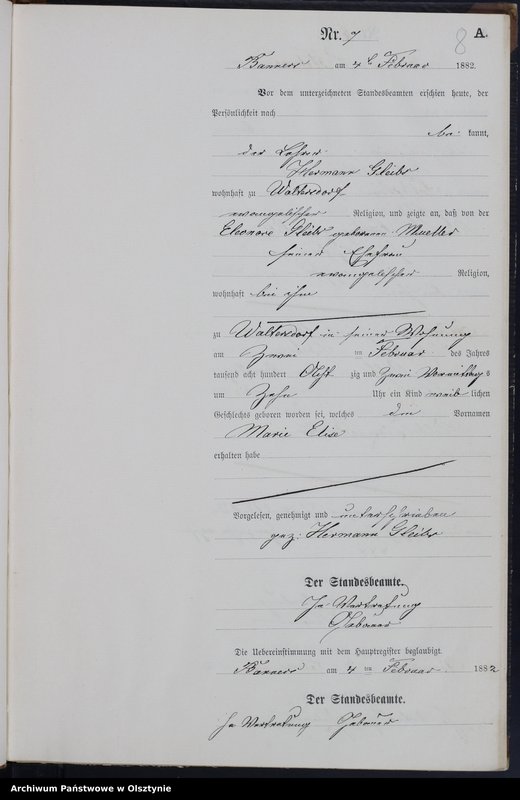 Nr. 7
8 A.
am 4ten Februar 1882.
Vor dem unterzeichneten Standesbeamten erschien heute, der
Persönlichkeit nach
be kannt,
der Lehrer
Hermann Gleibs
wohnhaft zu Waltersdorf
evangelischer Religion, und zeigte an, daß von der
Eleonore Gleibs geborenen Mueller
seiner Ehefrau
evangelischer Religion,
wohnhaft bei ihm
zu Waltersdorf in seiner Wohnung
am Zwei ten Februar des Jahres
tausend acht hundert Acht zig und Zwei Vormittag s
um Zehn Uhr ein Kind weib lichen
Geschlechts geboren worden sei, welches die Vornamen
Marie Elise
erhalten habe
Vorgelesen, genehmigt und unterschrieben
gez: Hermann Gleibs
Der Standesbeamte.
In Vertretung
Gebauer
Die Uebereinstimmung mit dem Hauptregister beglaubigt.
am 4 ten Februar 1882
Der Standesbeamte.
In Vertretung Gebauer
Archiwum Państwowe w Olsztynie